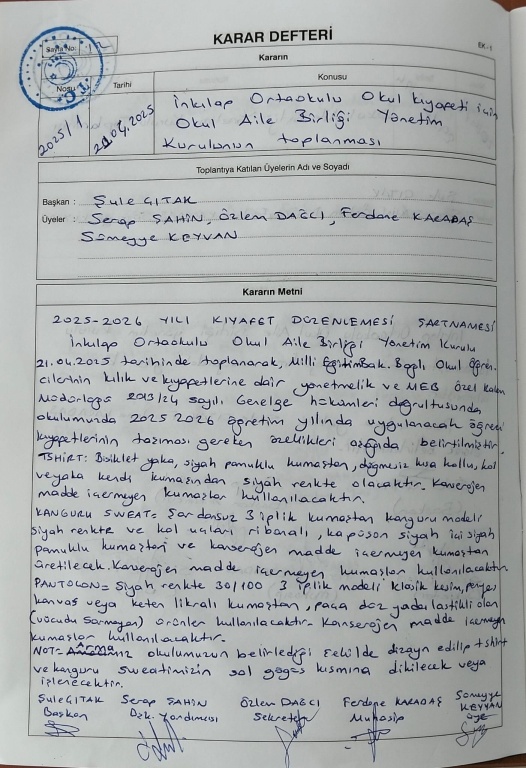 KARAR DEFTERİ
EK-1
Sayfa No:
Kararın
Nosu
Tarihi
Konusu
2025/1
21.04.2025
İnkılap Ortaokulu Okul kıyafeti için
Okul Aile Birliği Yönetim
Kurulunun toplanması
Toplantıya Katılan Üyelerin Adı ve Soyadı
Başkan : Şule GITAK
Üyeler : Serap ŞAHİN, Özlem DAĞCI, Ferdane KARABAŞ
Sümeyye KEYVAN
Kararın Metni
2025-2026 YILI KIYAFET DÜZENLEMESİ ŞARTNAMESİ
İnkılap Ortaokulu Okul Aile Birliği Yönetim Kurulu
21.04.2025 tarihinde toplanarak, Milli Eğitim Bak. Bağlı Okul Öğren.
cilerinin kılık ve kıyafetlerine dair yönetmelik ve MEB özel kalem
Müdürlüğü 2013/24 sayılı Genelge hükümleri doğrultusunda
okulumunda 2025 2026 öğretim yılında uygulanacak öğrenci
kıyafetlerinin taşıması gereken özellikleri aşağıda belirtilmiştir.
TSHİRT: Bisiklet yaka, siyah pamuklu kumaştan, düğmesiz kısa kollu, kol
ve yaka kendi kumaşından siyah renkte olacaktır. Kanserojen
madde içermeyen kumaşlar kullanılacaktır.
KANGURU SWEAT= Şardonsuz 3 iplik kumaştan kanguru modeli
siyah renkte ve kol uçları ribanalı, kapüşon siyah içi siyah
pamuklu kumaştan ve kanserojen madde içermeyen kumaştan
üretilecek. Kanserojen madde içermeyen kumaşlar kullanılacaktır.
PANTOLON= Siyah renkte 30/100 3 iplik modeli klasik kesim, penye
kanvas veya keten likralı kumaştan, paça düz yada lastikli olan
(vücudu sarmayan) ürünler kullanılacaktır. Kanserojen madde içermeyen
kumaşlar kullanılacaktır.
NOT= Arma okulumuzun belirlediği şekilde dizayn edilip tshirt
ve kanguru sweatimizin sol göğüs kısmına dikilecek veya
işlenecektir.
Şule GITAK Serap ŞAHİN Özlem DAĞCI Ferdane KARABAŞ Sümeyye KEYVAN
Başkan Bşk. Yardımcısı Sekreter Muhasip üye